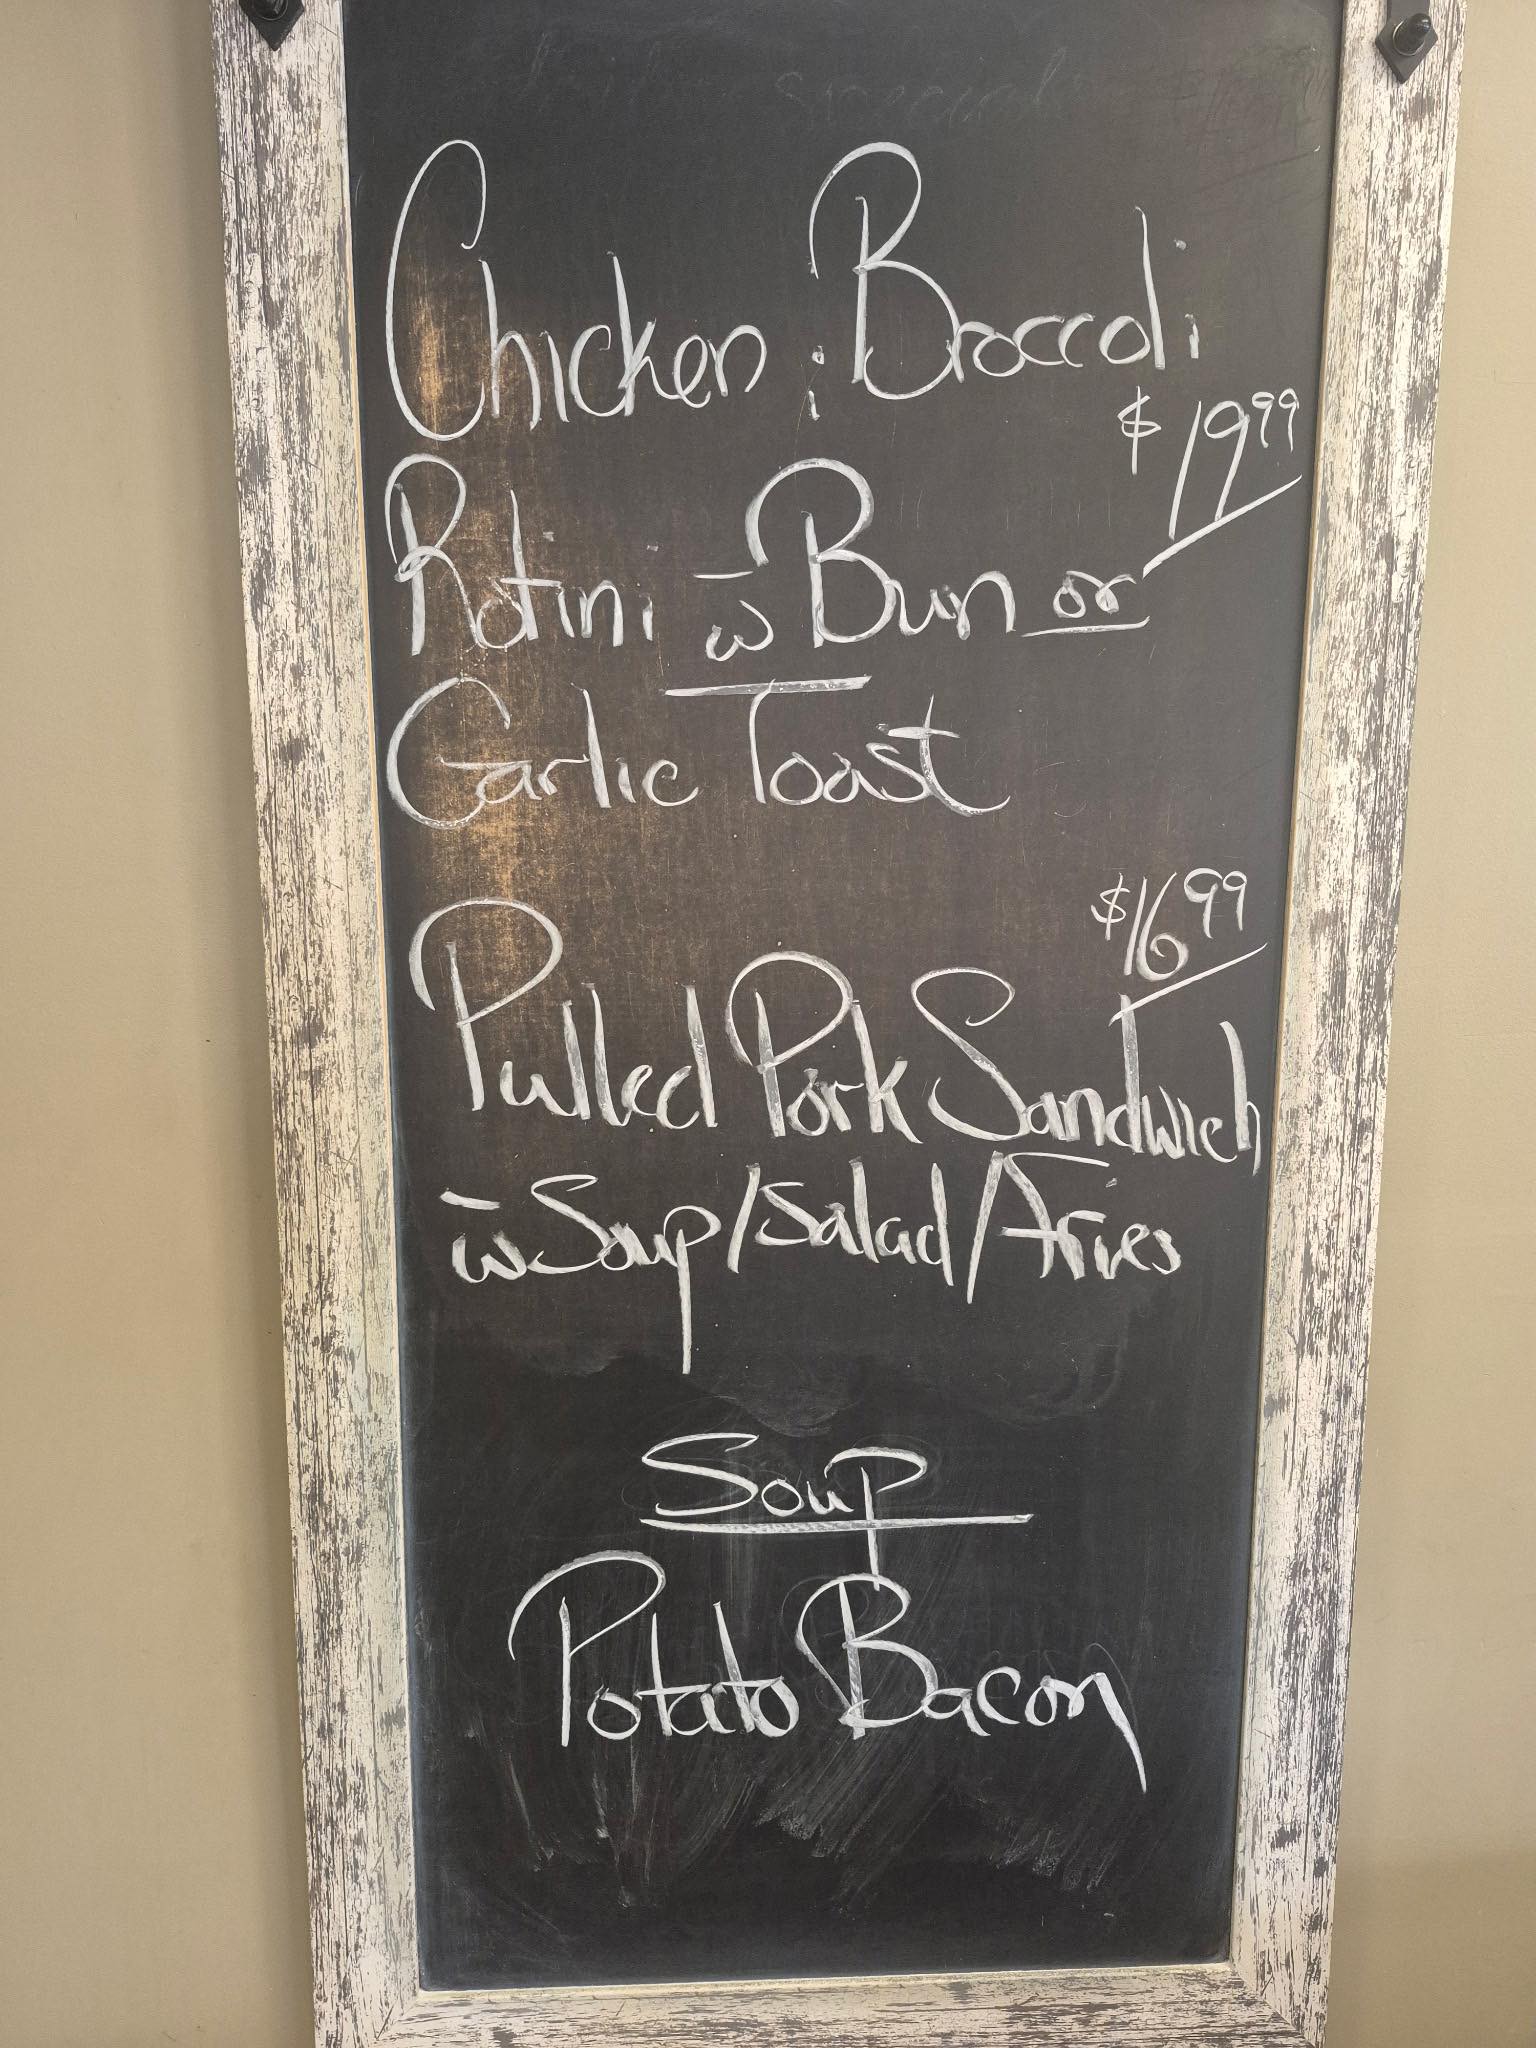 Chicken ; Broccoli
$19.99
Rotini w̄ Bun or
Garlic Toast
$16.99
Pulled Pork Sandwich
w̄ Soup/Salad/Fries
Soup
Potato Bacon